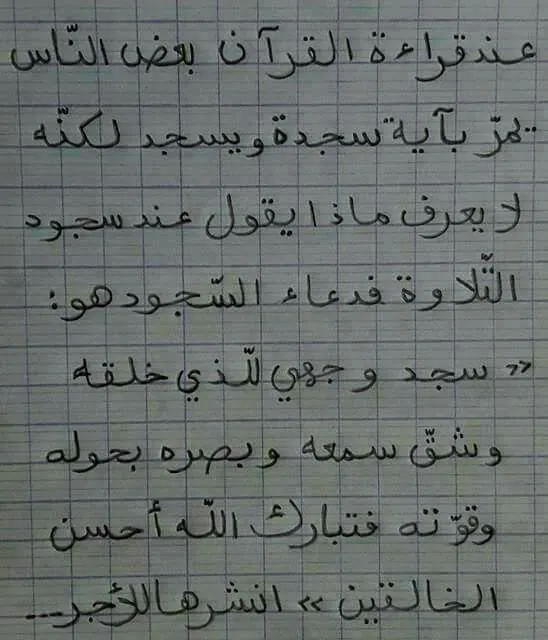 عند قراءة القرآن بعض النّاس
يمرّ بآية سجدة ويسجد لكنّه
لا يعرف ماذا يقول عند سجود
التّلاوة فدعاء السّجود هو:
« سجد وجهي للّذي خلقه
وشقّ سمعه وبصره بحوله
وقوّته فتبارك اللّه أحسن
الخالقين » انشرها للأجر...